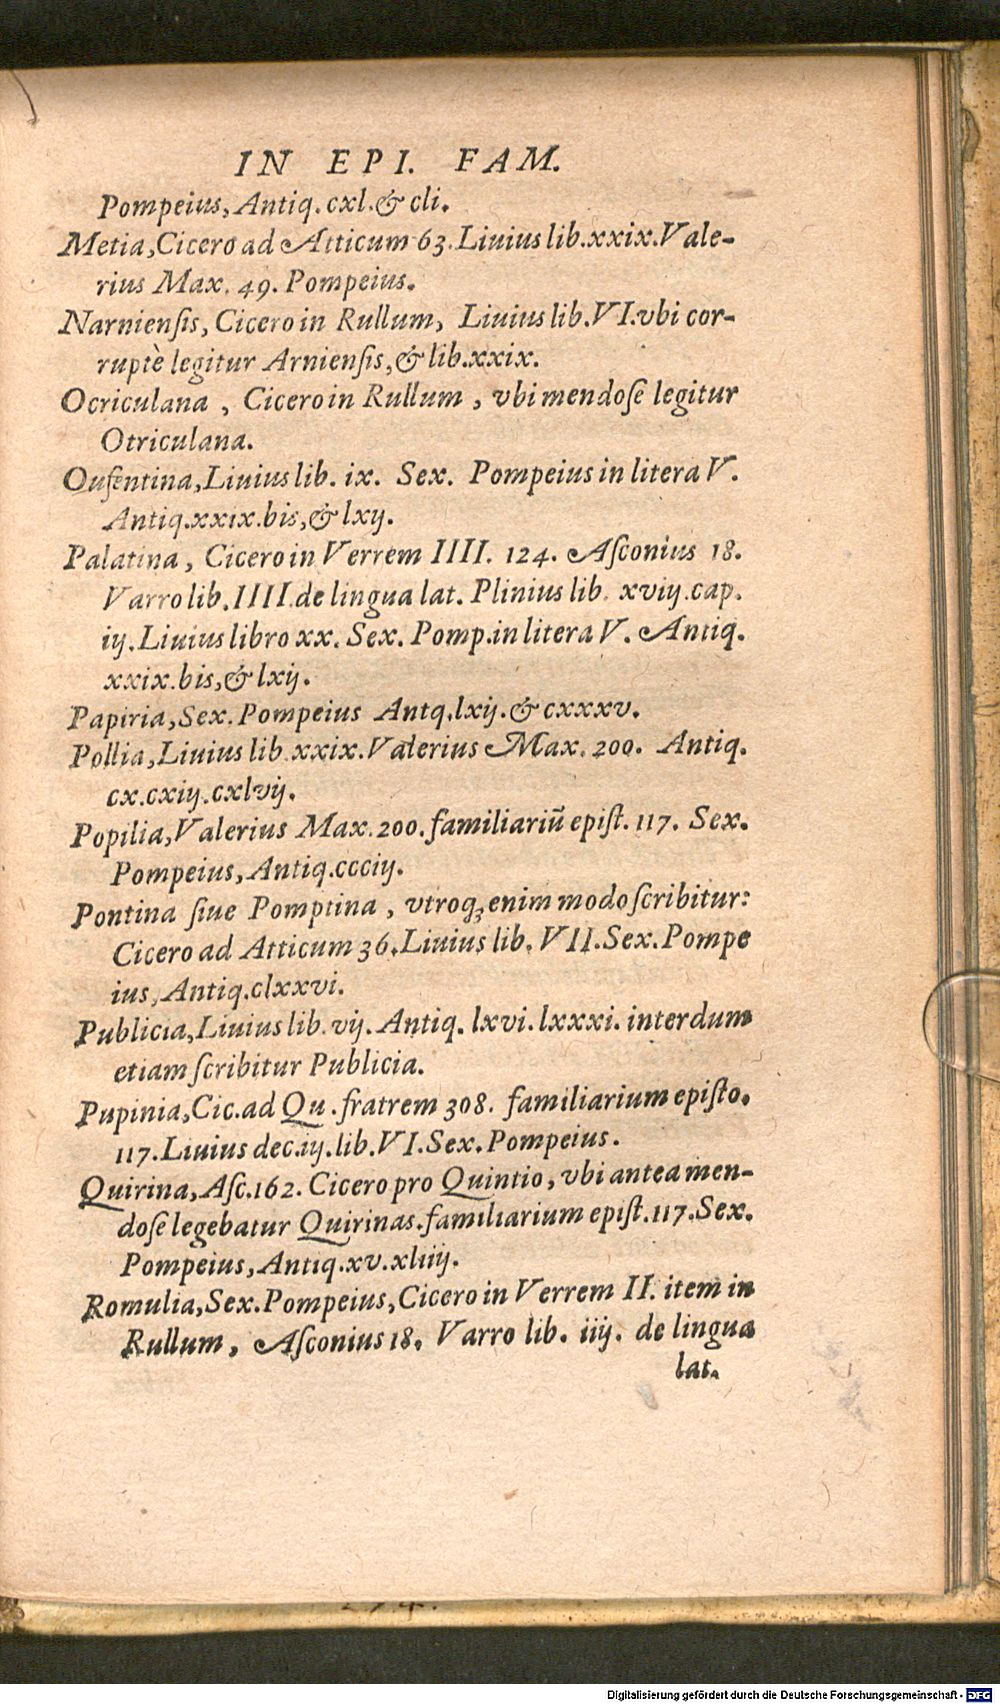 IN EPI. FAM.
Pompeius, Antiq. cxl. & cli.
Metia, Cicero ad Atticum 63. Liuius lib. xxix. Vale-
rius Max. 49. Pompeius.
Narniensis, Cicero in Rullum, Liuius lib. VI. vbi cor-
ruptè legitur Arniensis, & lib. xxix.
Ocriculana , Cicero in Rullum , vbi mendose legitur
Otriculana.
Oufentina, Liuius lib. ix. Sex. Pompeius in litera V.
Antiq. xxix. bis, & lxij.
Palatina , Cicero in Verrem IIII. 124. Asconius 18.
Varro lib. IIII. de lingua lat. Plinius lib. xviij. cap.
iij. Liuius libro xx. Sex. Pomp. in litera V. Antiq.
xxix. bis, & lxij.
Papiria, Sex. Pompeius Antq. lxij. & cxxxv.
Pollia, Liuius lib. xxix. Valerius Max. 200. Antiq.
cx. cxiij. cxlvij.
Popilia, Valerius Max. 200. familiariū epist. 117. Sex.
Pompeius, Antiq. ccciij.
Pontina siue Pomptina , vtroq; enim modo scribitur:
Cicero ad Atticum 36. Liuius lib. VII. Sex. Pompe
ius, Antiq. clxxvi.
Publicia, Liuius lib. vij. Antiq. lxvi. lxxxi. interdum
etiam scribitur Publicia.
Pupinia, Cic. ad Qu. fratrem 308. familiarium episto.
117. Liuius dec. iij. lib. VI. Sex. Pompeius.
Quirina, Asc. 162. Cicero pro Quintio, vbi antea men-
dose legebatur Quirinas. familiarium epist. 117. Sex.
Pompeius, Antiq. xv. xliiij.
Romulia, Sex. Pompeius, Cicero in Verrem II. item in
Rullum, Asconius 18. Varro lib. iiij. de lingua
lat.
Digitalisierung gefördert durch die Deutsche Forschungsgemeinschaft - DFG